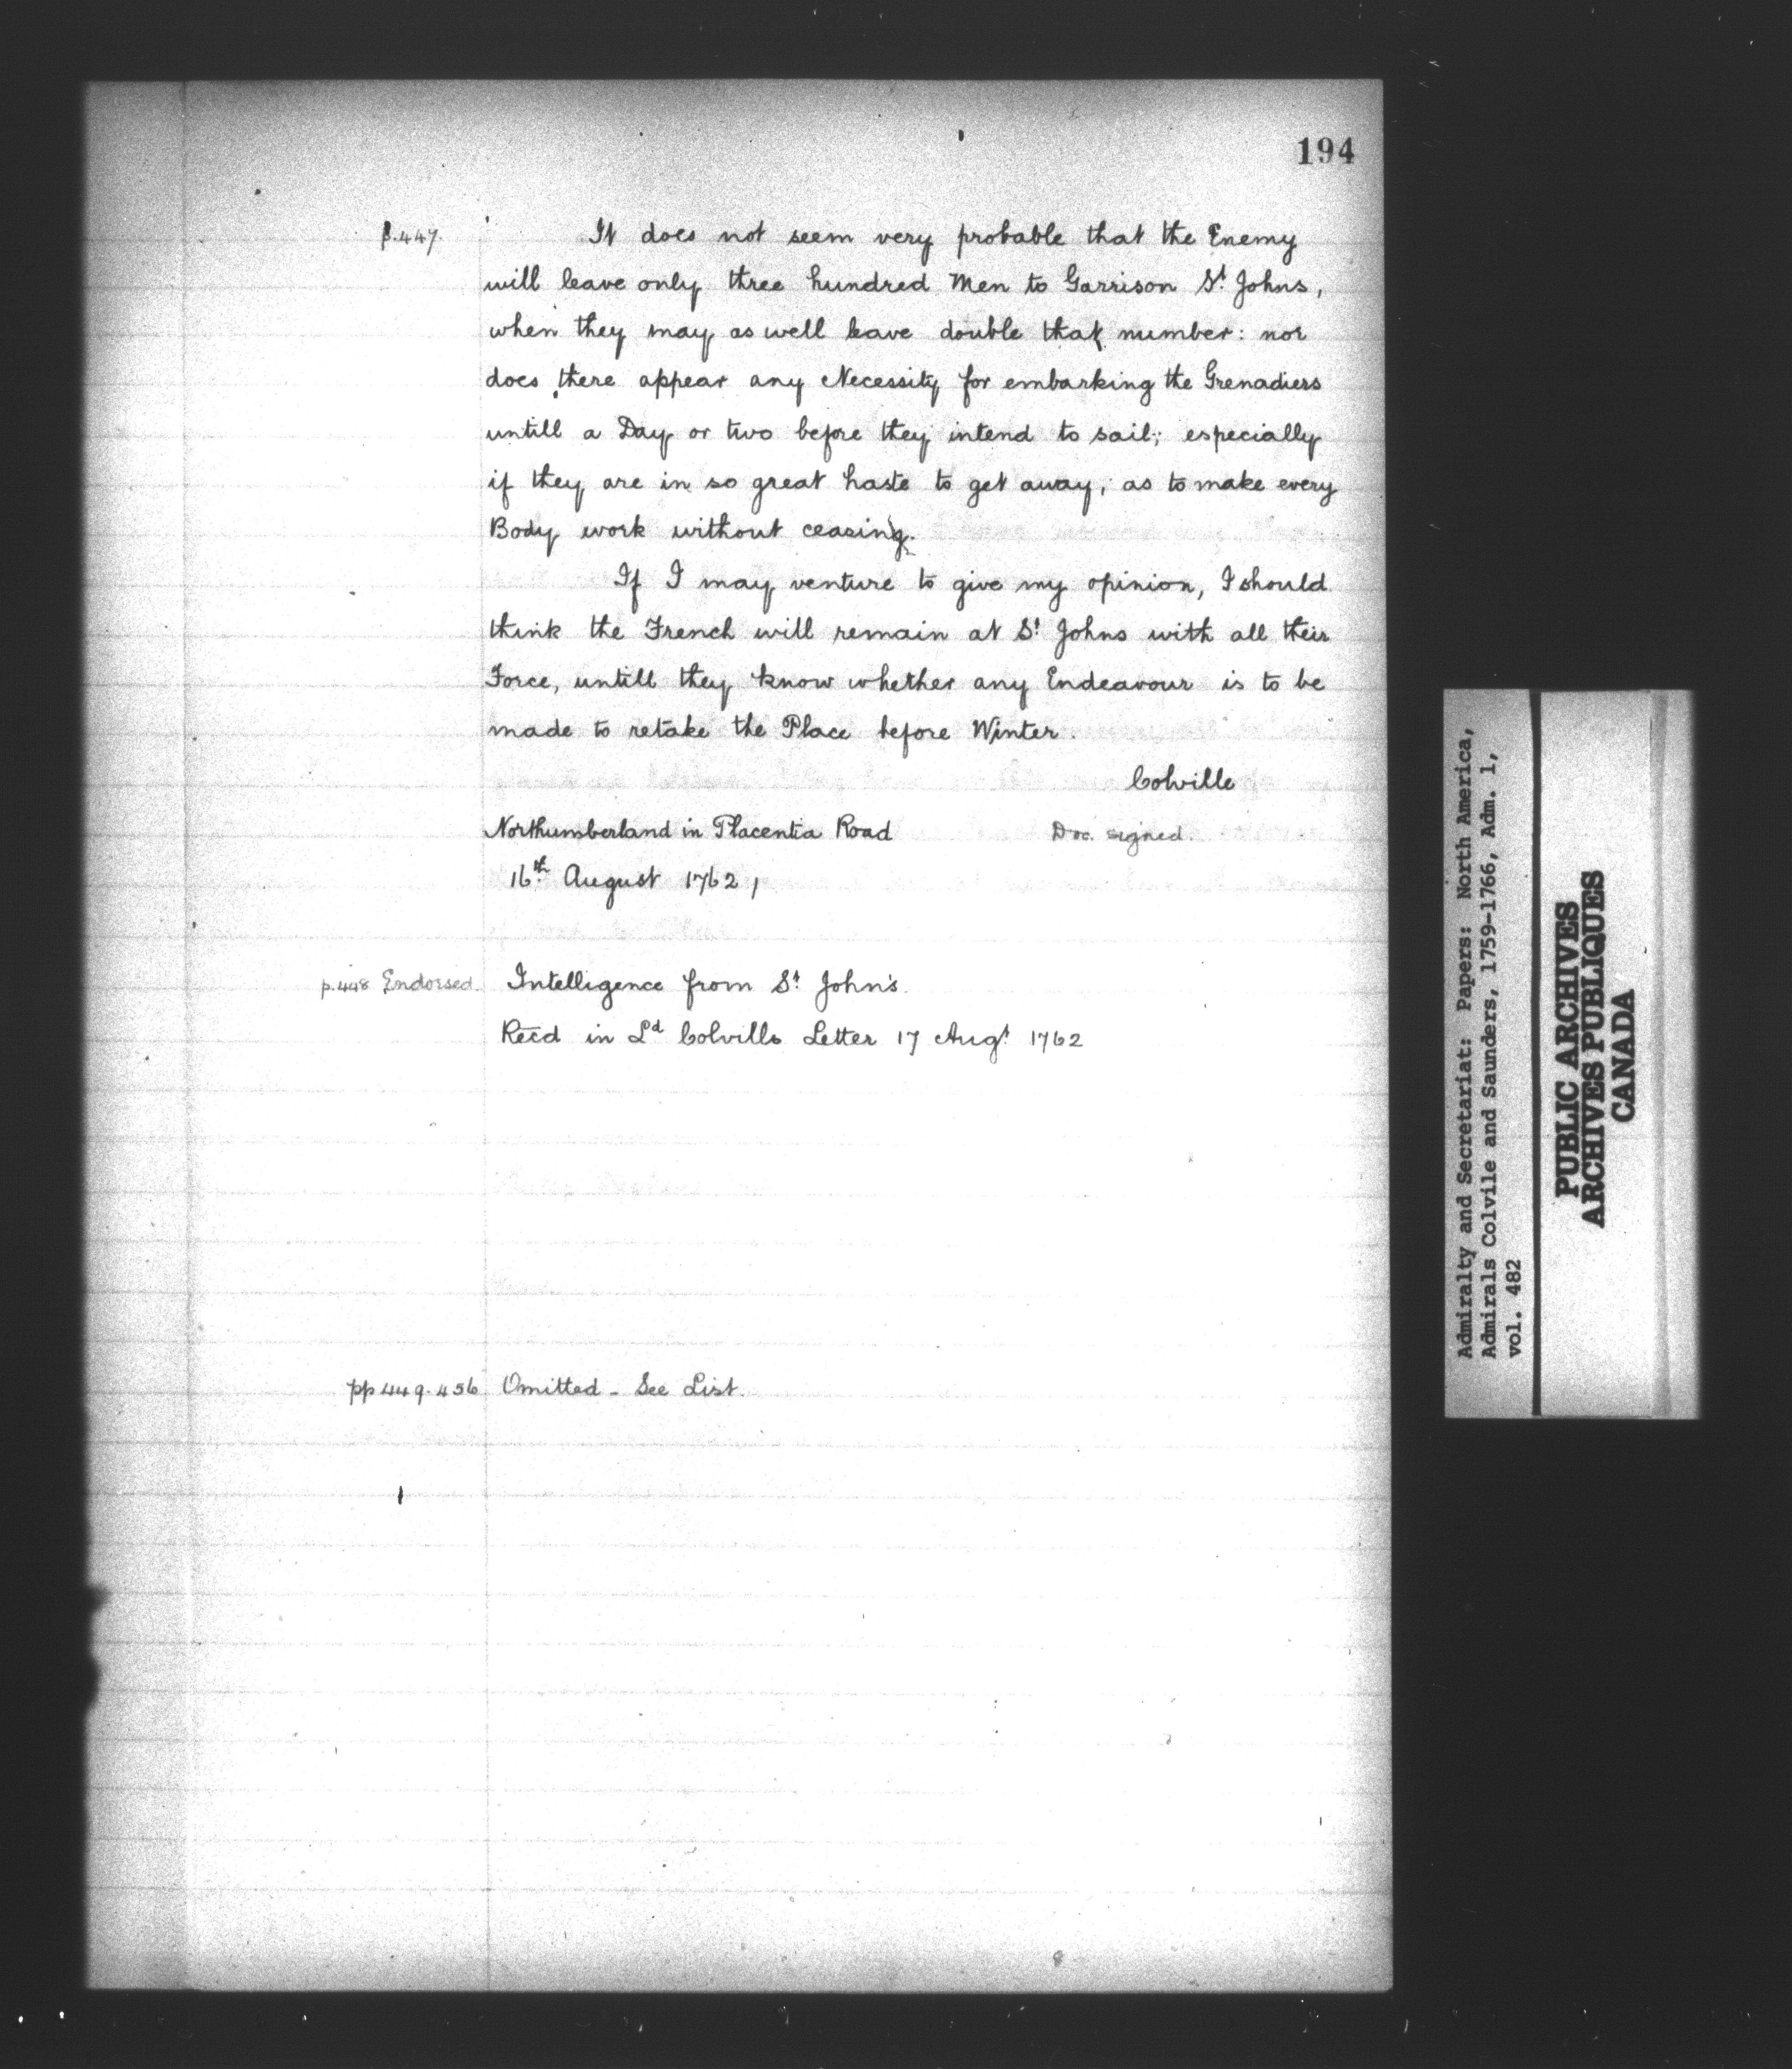 194
p.447. It does not seem very probable that the Enemy
will leave only three hundred Men to Garrison St Johns,
when they may as well leave double that number: nor
does there appear any Necessity for embarking the Grenadiers
untill a Day or two before they intend to sail; especially
if they are in so great haste to get away, as to make every
Body work without ceasing.
If I may venture to give my opinion, I should
think the French will remain at St Johns with all their
Force, untill they know whether any Endeavour is to be
made to retake the Place before Winter.
Colville
Northumberland in Placentia Road Doc. signed.
16th August 1762,
p.448 Endorsed. Intelligence from St John's.
Recd in Ld Colvills Letter 17 Augt 1762
pp 449-456 Omitted - See List.
Admiralty and Secretariat: Papers: North America,
Admirals Colvile and Saunders, 1759-1766, Adm. 1,
vol. 482
PUBLIC ARCHIVES
ARCHIVES PUBLIQUES
CANADA